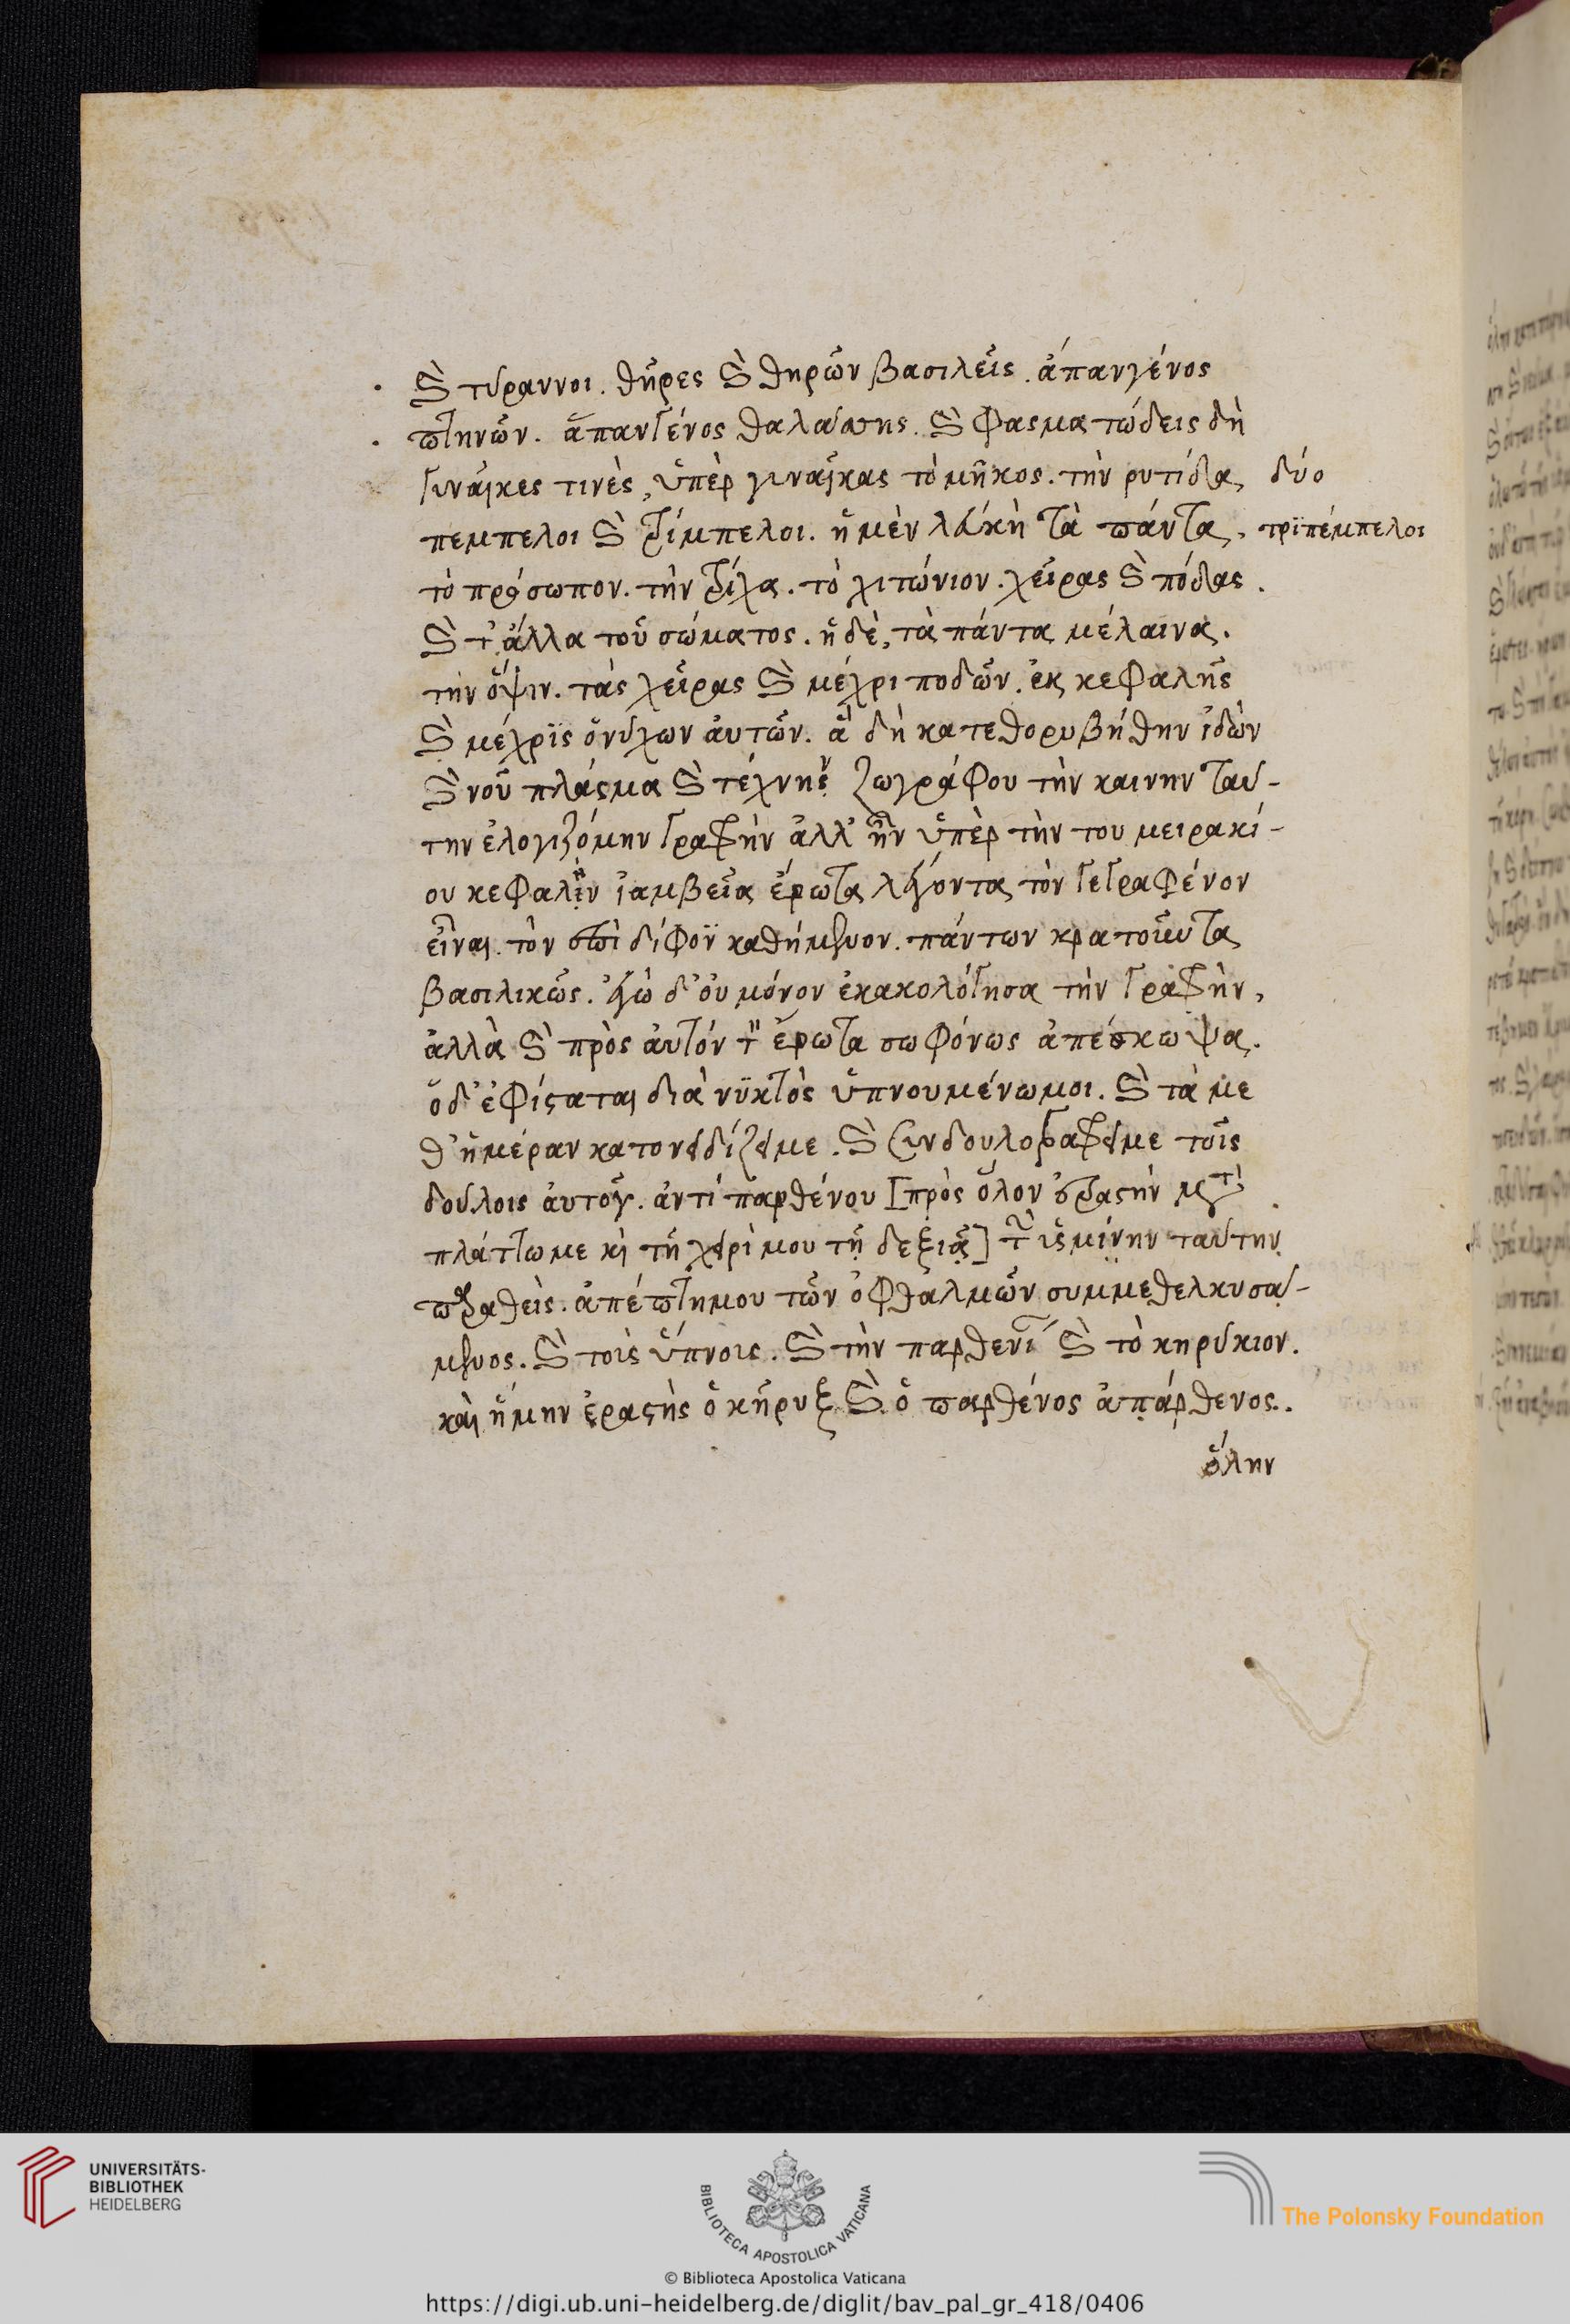 καὶ τύραννοι. θῆρες καὶ θηρῶν βασιλεῖς. ἁπανγένος
πτηνῶν. ἅπανγένος θαλάττης. καὶ φασματώδεις δὴ
γυναῖκες τινὲς, ὑπὲρ γυναῖκας τὸ μῆκος. τὴν ρυτίδα, δύο
πεμπελοι καὶ τρίμπελοι. ἡ μὲν λευκὴ τὰ πάντα, τριπέμπελοι
τὸ πρόσωπον. τὴν τρίχα. τὸ χιτώνιον. χεῖρας καὶ πόδας.
καὶ τ' ἄλλα τοῦ σώματος. ἡ δὲ, τὰ πάντα μέλαινα.
τὴν ὄψιν. τὰς χεῖρας καὶ μέχρι ποδῶν. ἐκ κεφαλῆς
καὶ μέχρις ὀνύχων ἀυτῶν. ἃ δὴ κατεθορυβήθην ἰδὼν
καὶ νοῦ πλάσμα καὶ τέχνης ζωγράφου τὴν καινην ταύ-
την ἐλογιζόμην γραφὴν ἀλλ' ἦν ὑπὲρ τὴν του μειρακί-
ου κεφαλὴν ἰαμβεῖα ἔρωτα λέγοντα τὸν γεγραφένον
εἶναι. τὸν ἐπὶ δίφου καθήμενον. πάντων κρατοῦντα
βασιλικῶς. ἐγὼ δ' ὀυ μόνον ἐκακολόγησα τὴν γραφὴν,
ἀλλὰ καὶ πρὸς ἀυτόν τ ἔρωτα σωφόνως ἀπέσκωψα.
ὁδ' ἐφίσαται διὰ νυκτὸς ὑπνουμένωμοι. καὶ τὰ με
θ' ἡμέραν κατονειδίζειμε. καὶ συνδουλογραφειμε τοῖς
δούλοις ἀυτοῦ. ἀντί παρθένου [πρὸς ὅλον ἐραστὴν μετὰ
πλάττωμε κὶ τῇ χειρί μου τῇ δεξιᾷ] τὴν ὑσμίνην ταύτην
πτραθεὶς. ἀπέπτημου τῶν ὀφθαλμῶν συμμεθελκυσά-
μενος. καὶ τοὶς ὕπνοις. καὶ τὴν παρθενί καὶ τὸ κηρύκιον.
καὶ ἤμην ἐραστὴς ὁ κῆρυξ καὶ ὁ παρθένος ἀπάρθενος.
ὅλην
UNIVERSITÄTS-
BIBLIOTHEK
HEIDELBERG
BIBLIOTECA APOSTOLICA VATICANA
The Polonsky Foundation
© Biblioteca Apostolica Vaticana
https://digi.ub.uni-heidelberg.de/diglit/bav_pal_gr_418/0406